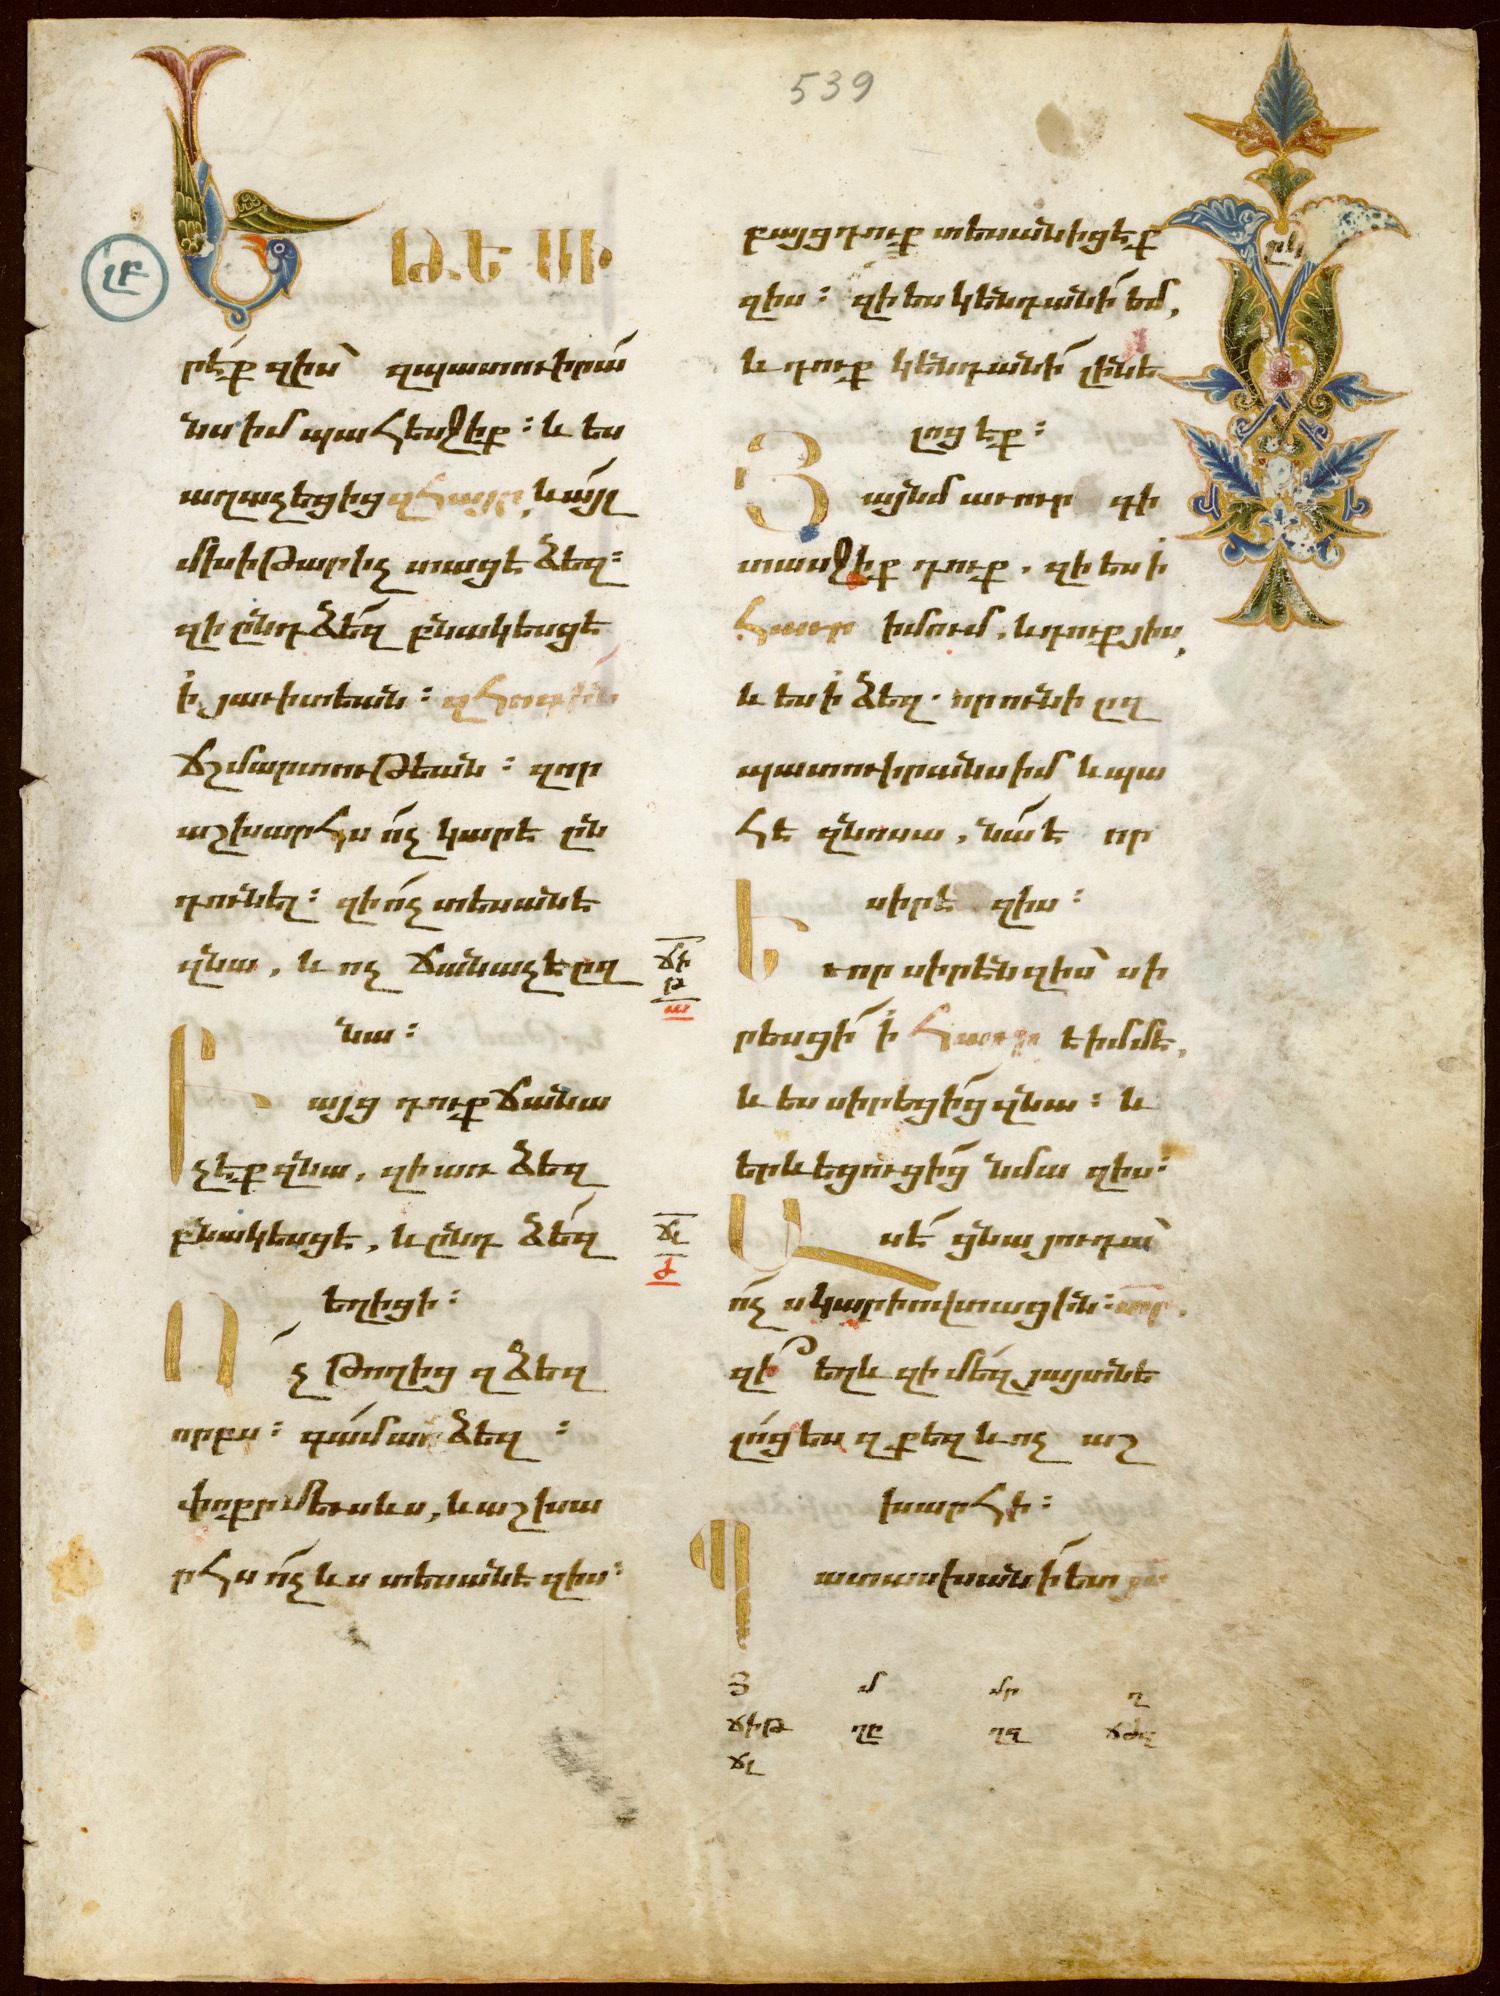 539
ԼԲ
Ե ԹԷ ՍԻ
րէք զիս՝ զպատուիրա
նս իմ պահեսջիք։ և ես
աղաչեցից զՀայր, և այլ
մխիթարիչ տացէ ձեզ։
զի ընդ ձեզ բնակեսցէ
ի յաւիտեան։ զՀոգին
ճշմարտութեան։ զոր
աշխարհս ոչ կարէ ըն
դունել։ զի ոչ տեսանէ
զնա, և ոչ ճանաչէ ըզ
նա։
Բայց դուք ճանա
չէք զնա, զի առ ձեզ
բնակեսցէ, և ընդ ձեզ
եղիցի։
Ոչ թողից զձեզ
որբս։ գամ առ ձեզ։
փոքր մեւս ևս, և աշխա
րհս ոչ ևս տեսանէ զիս։
ՃԻ
Թ
ՃԼ
Ժ
բայց դուք տեսանիցէք
զիս։ զի ես կենդանի եմ,
և դուք կենդանի լինե
լոց էք։
Յայնմ աւուր գի
տասջիք դուք, զի ես ի
Հաւր իմում, և դուք յիս,
և ես ի ձեզ. որ ունի ըզ
պատուիրանս իմ և պա
հէ զնոսա, նա է որ
սիրէ զիս։
Եւ որ սիրէն զիս՝ սի
րեսցի ի Հաւրէ իմմէ,
և ես սիրեցից զնա։ և
երևեցուցից նմա զիս։
Ասէ ցնա յուդա՝
ոչ սկարիովտացին։ տր,
զի՞ եղև զի մեզ յայտնե
լոց ես զքեզ և ոչ աշ
խարհի։
Պատասխանի ետ
Յ մ մր ղ
ՃԻԹ ՂԸ ՂԶ ՃԺԶ
ՃԼ